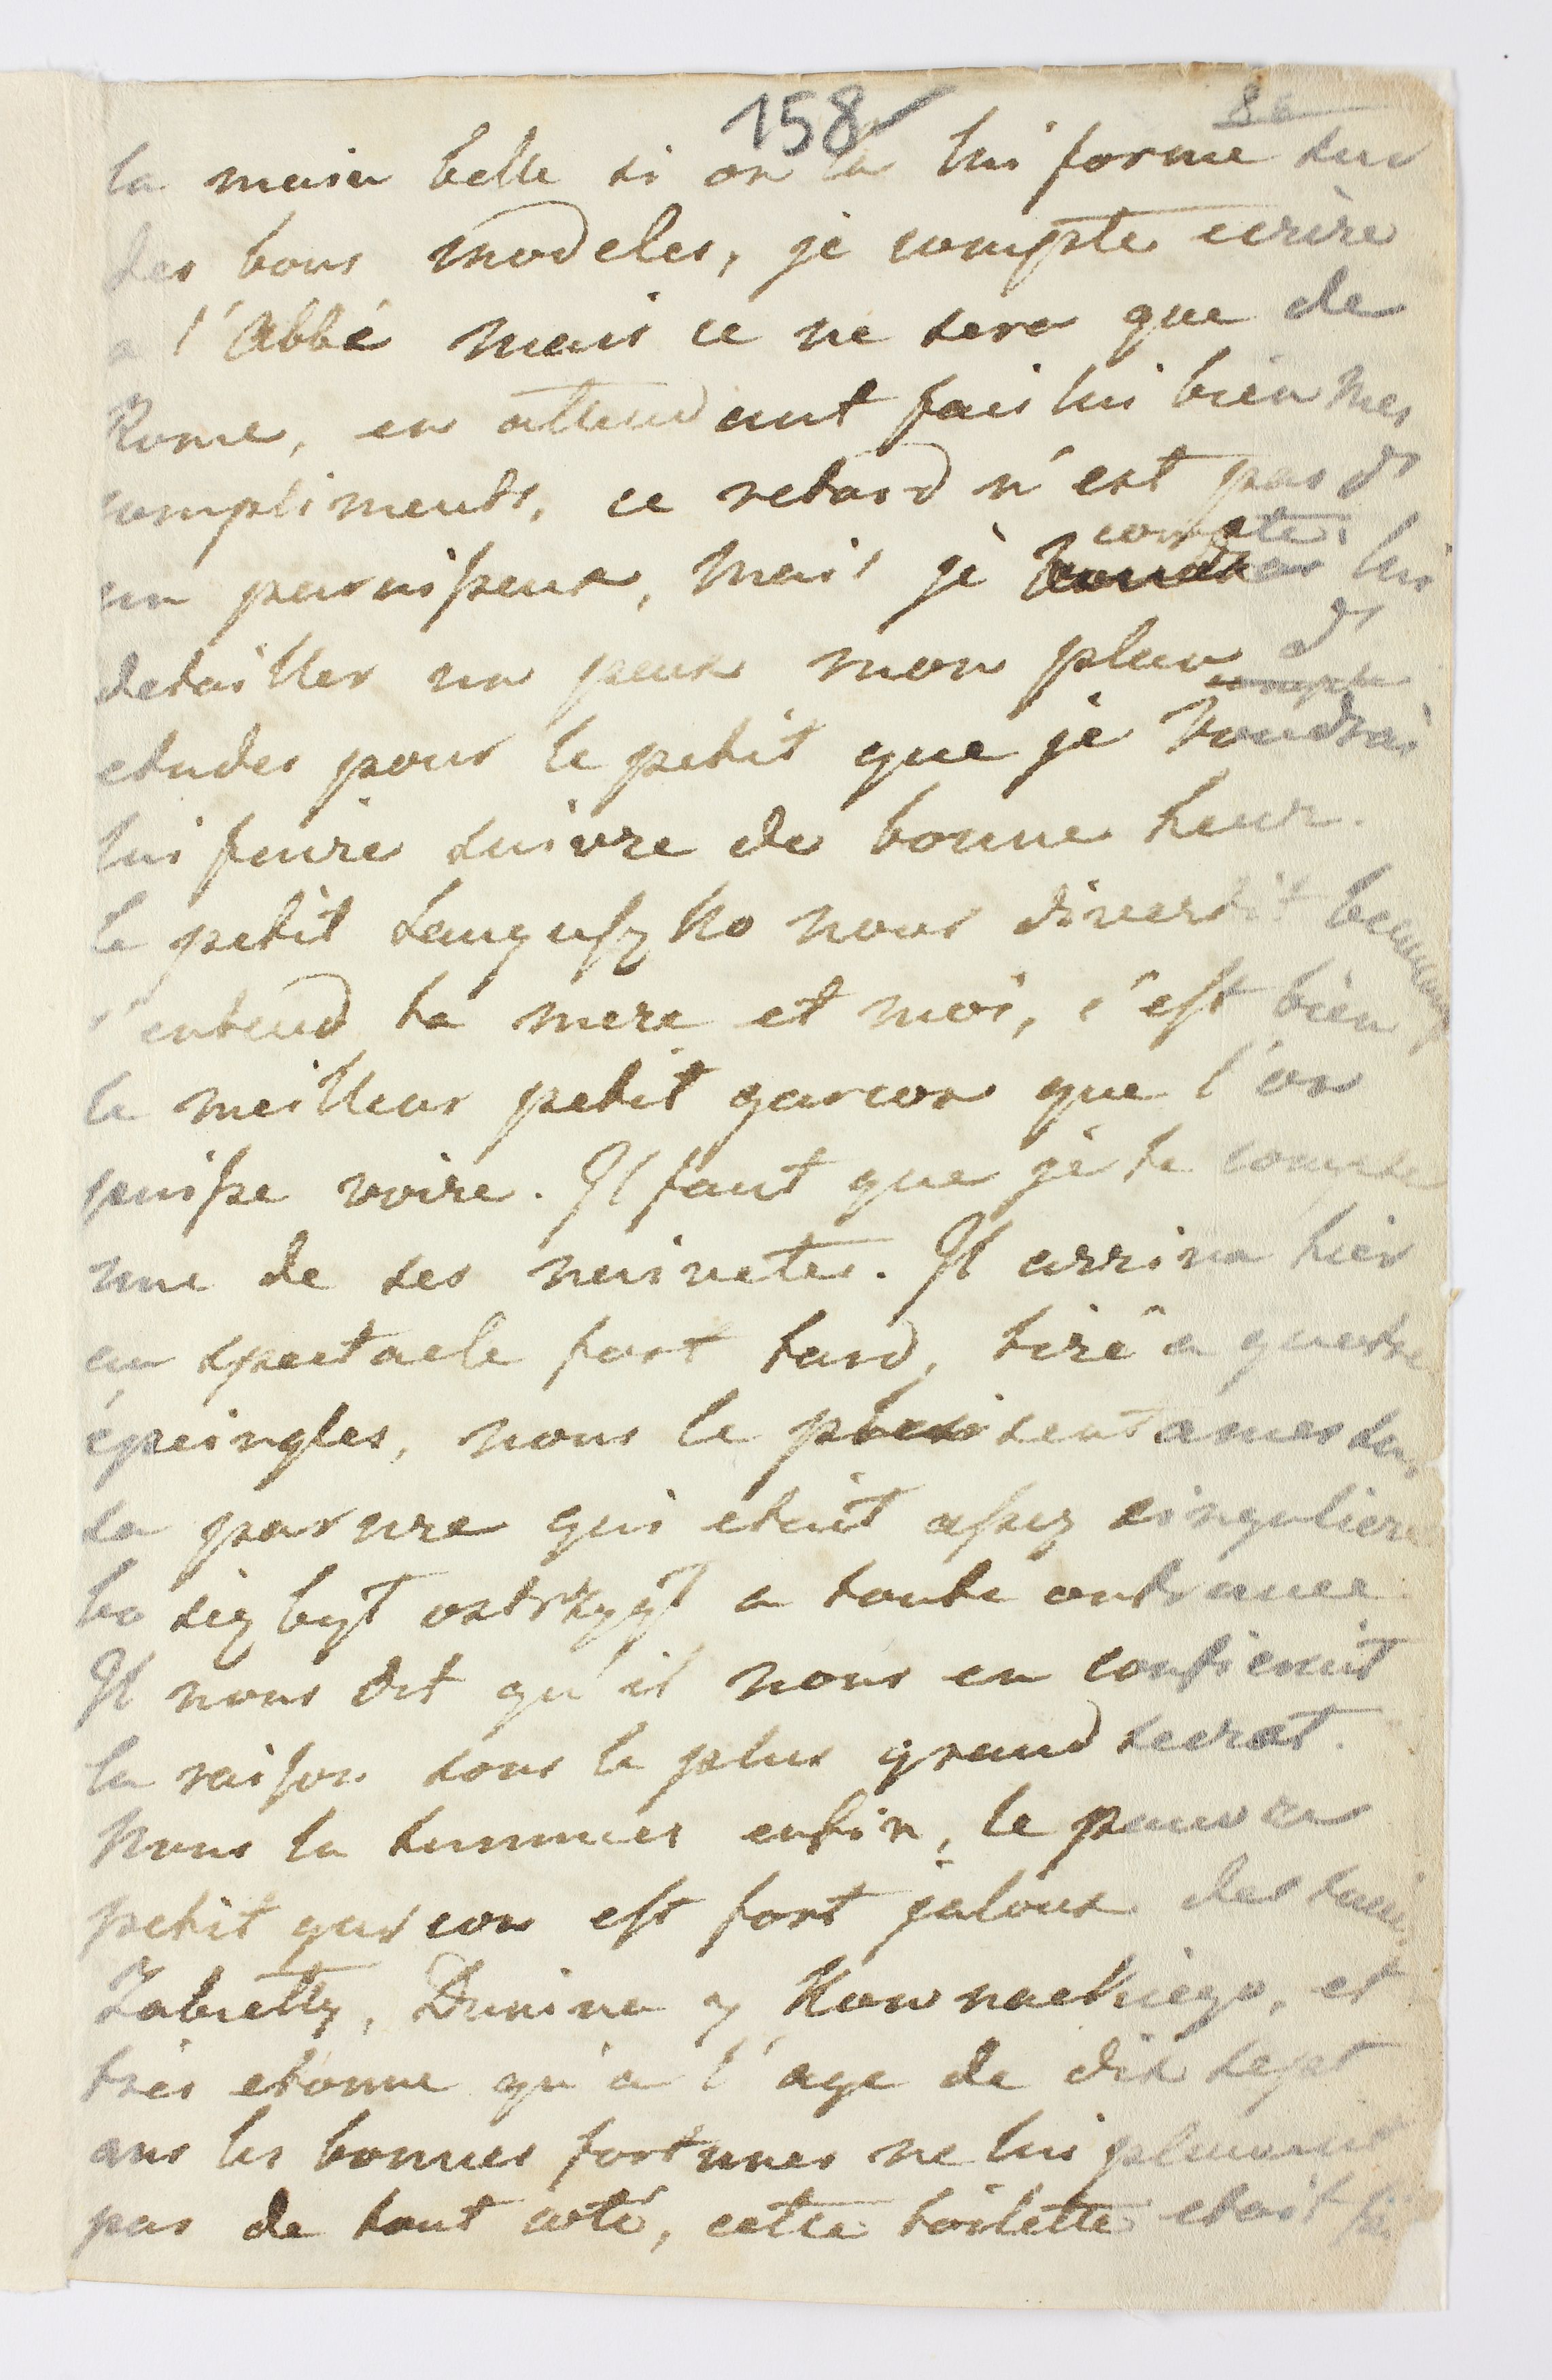 158
86
la main belle si on la lui forme sur
des bons modeles, je compte ecrire
a l'Abbé mais ce ne sera que de
Rome, en attendant fais lui bien mes
compliments, ce retard n'est pas d'
un parnisseux, mais je compte lui
detailler un peux mon plan d'
etudes pour le petit que je voudrai
lui faire suivre de bonne heur.
le petit Sanguszko nous divertit beaucoup
s'entend ta mere et moi, c'est bien
le meilleur petit garcon que l'on
puisse voire. Il faut que je te compte
une de ses naivetes. Il arriva hier
au spectacle fort tard, tiré a quatre
épeingles, nous le plaisentames sur
sa parure qui etait assez singuliere
bo się był ostrzygł a toute outrance
Il nous dit qu'il nous en confierait
la raison sous le plus grand secrat.
Nous la sumues enfin, le pauvre
petit garcon est fort jaloux des
Zabietty, Dunina y Kownackiego, et
tres etonne qu'a l'age de dix sept
ans les bonnes fortunes ne lui pleuvent
pas de tout coté, cette toilette etait